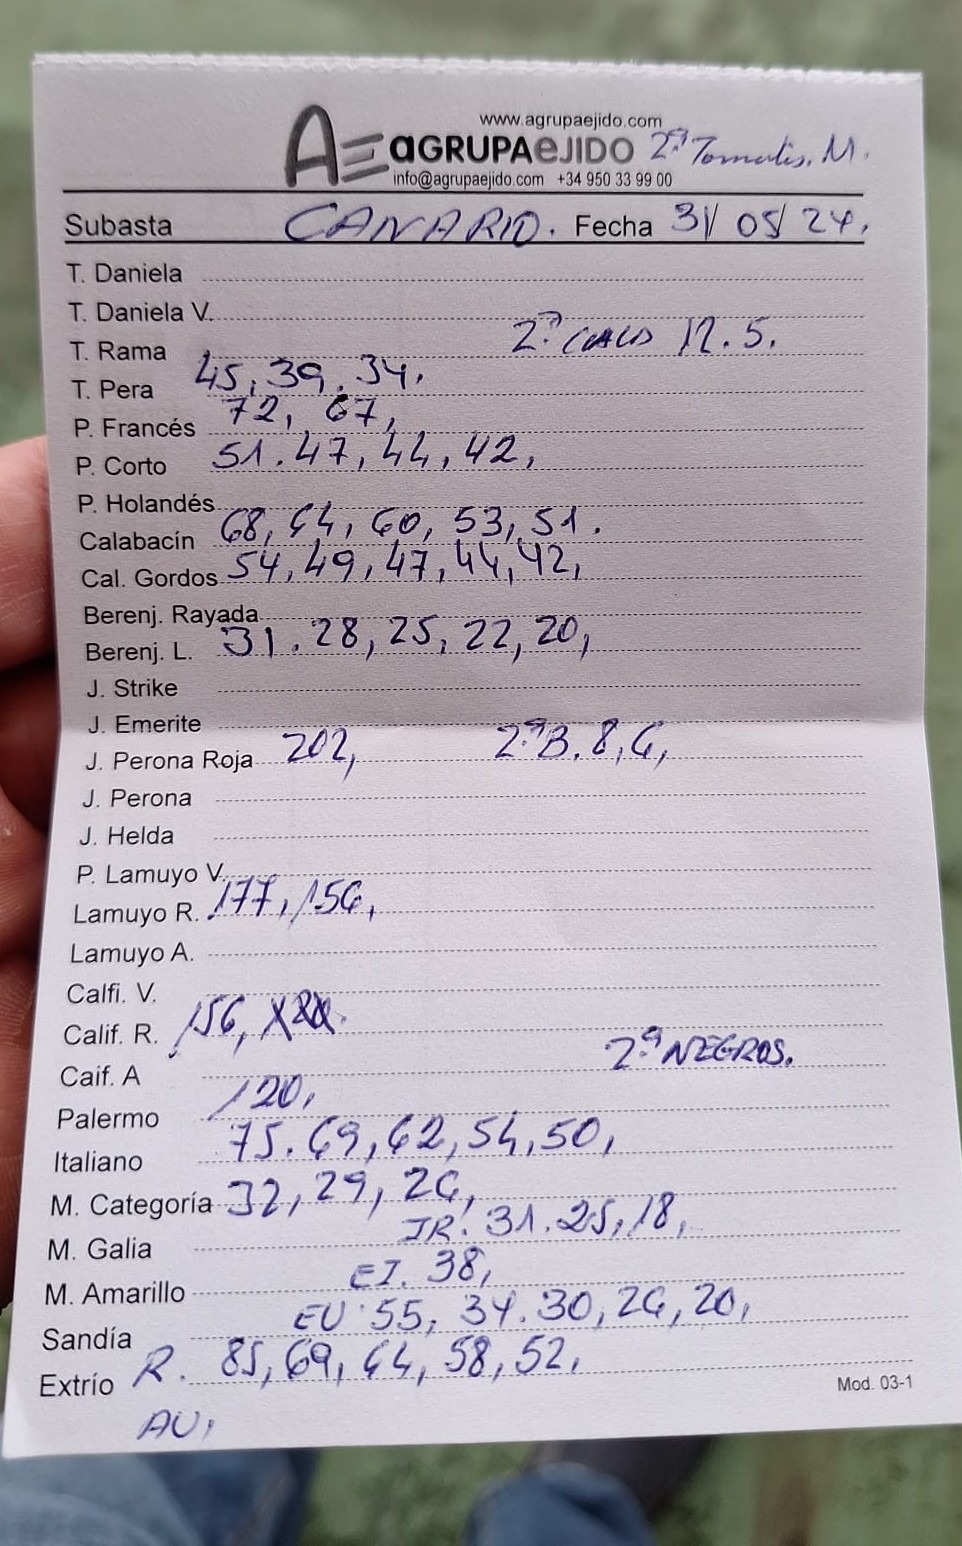 www.agrupaejido.com
AE AGRUPAEJIDO 2ª Tomates, M.
info@agrupaejido.com +34 950 33 99 00
Subasta CANARIO. Fecha 31/05/24,
T. Daniela
T. Daniela V.
T. Rama 2ª 12.5.
T. Pera 45, 39. 34.
P. Francés 72, 67,
P. Corto 51. 47, 44, 42,
P. Holandés
Calabacín 68, 64, 60, 53, 51.
Cal. Gordos 54, 49, 47, 44, 42,
Berenj. Rayada
Berenj. L. 31. 28, 25, 22, 20,
J. Strike
J. Emerite
J. Perona Roja 202, 2ªB. 8, 6,
J. Perona
J. Helda
P. Lamuyo V.
Lamuyo R. 177, 156,
Lamuyo A.
Calfi. V.
Calif. R. 156,
Caif. A 2ª NEGROS.
Palermo 120,
Italiano 75. 69, 62, 54, 50,
M. Categoría 32, 29, 26,
M. Galia JR! 31. 25, 18,
M. Amarillo EI. 38,
Sandía EU 55, 34. 30, 26, 20,
Extrío R. 85, 69, 64, 58, 52,
Mod. 03-1
AU,